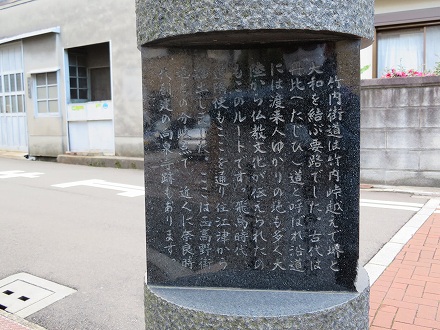 竹内街道は竹内峠越えで堺と
大和を結ぶ要路でした。古代は
比(たじひ)道と呼ばれ沿道
には渡来人ゆかりの地も多く大
陸から仏教文化が伝えられた
のルートです。飛鳥時代
使もここを通り住江津か
ここは西高野街
近くに奈良時
行基の向泉寺跡もあります。